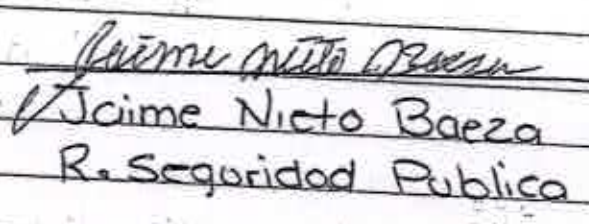 Jaime Nieto Baeza
Jaime Nieto Baeza
R. Seguridad Publica